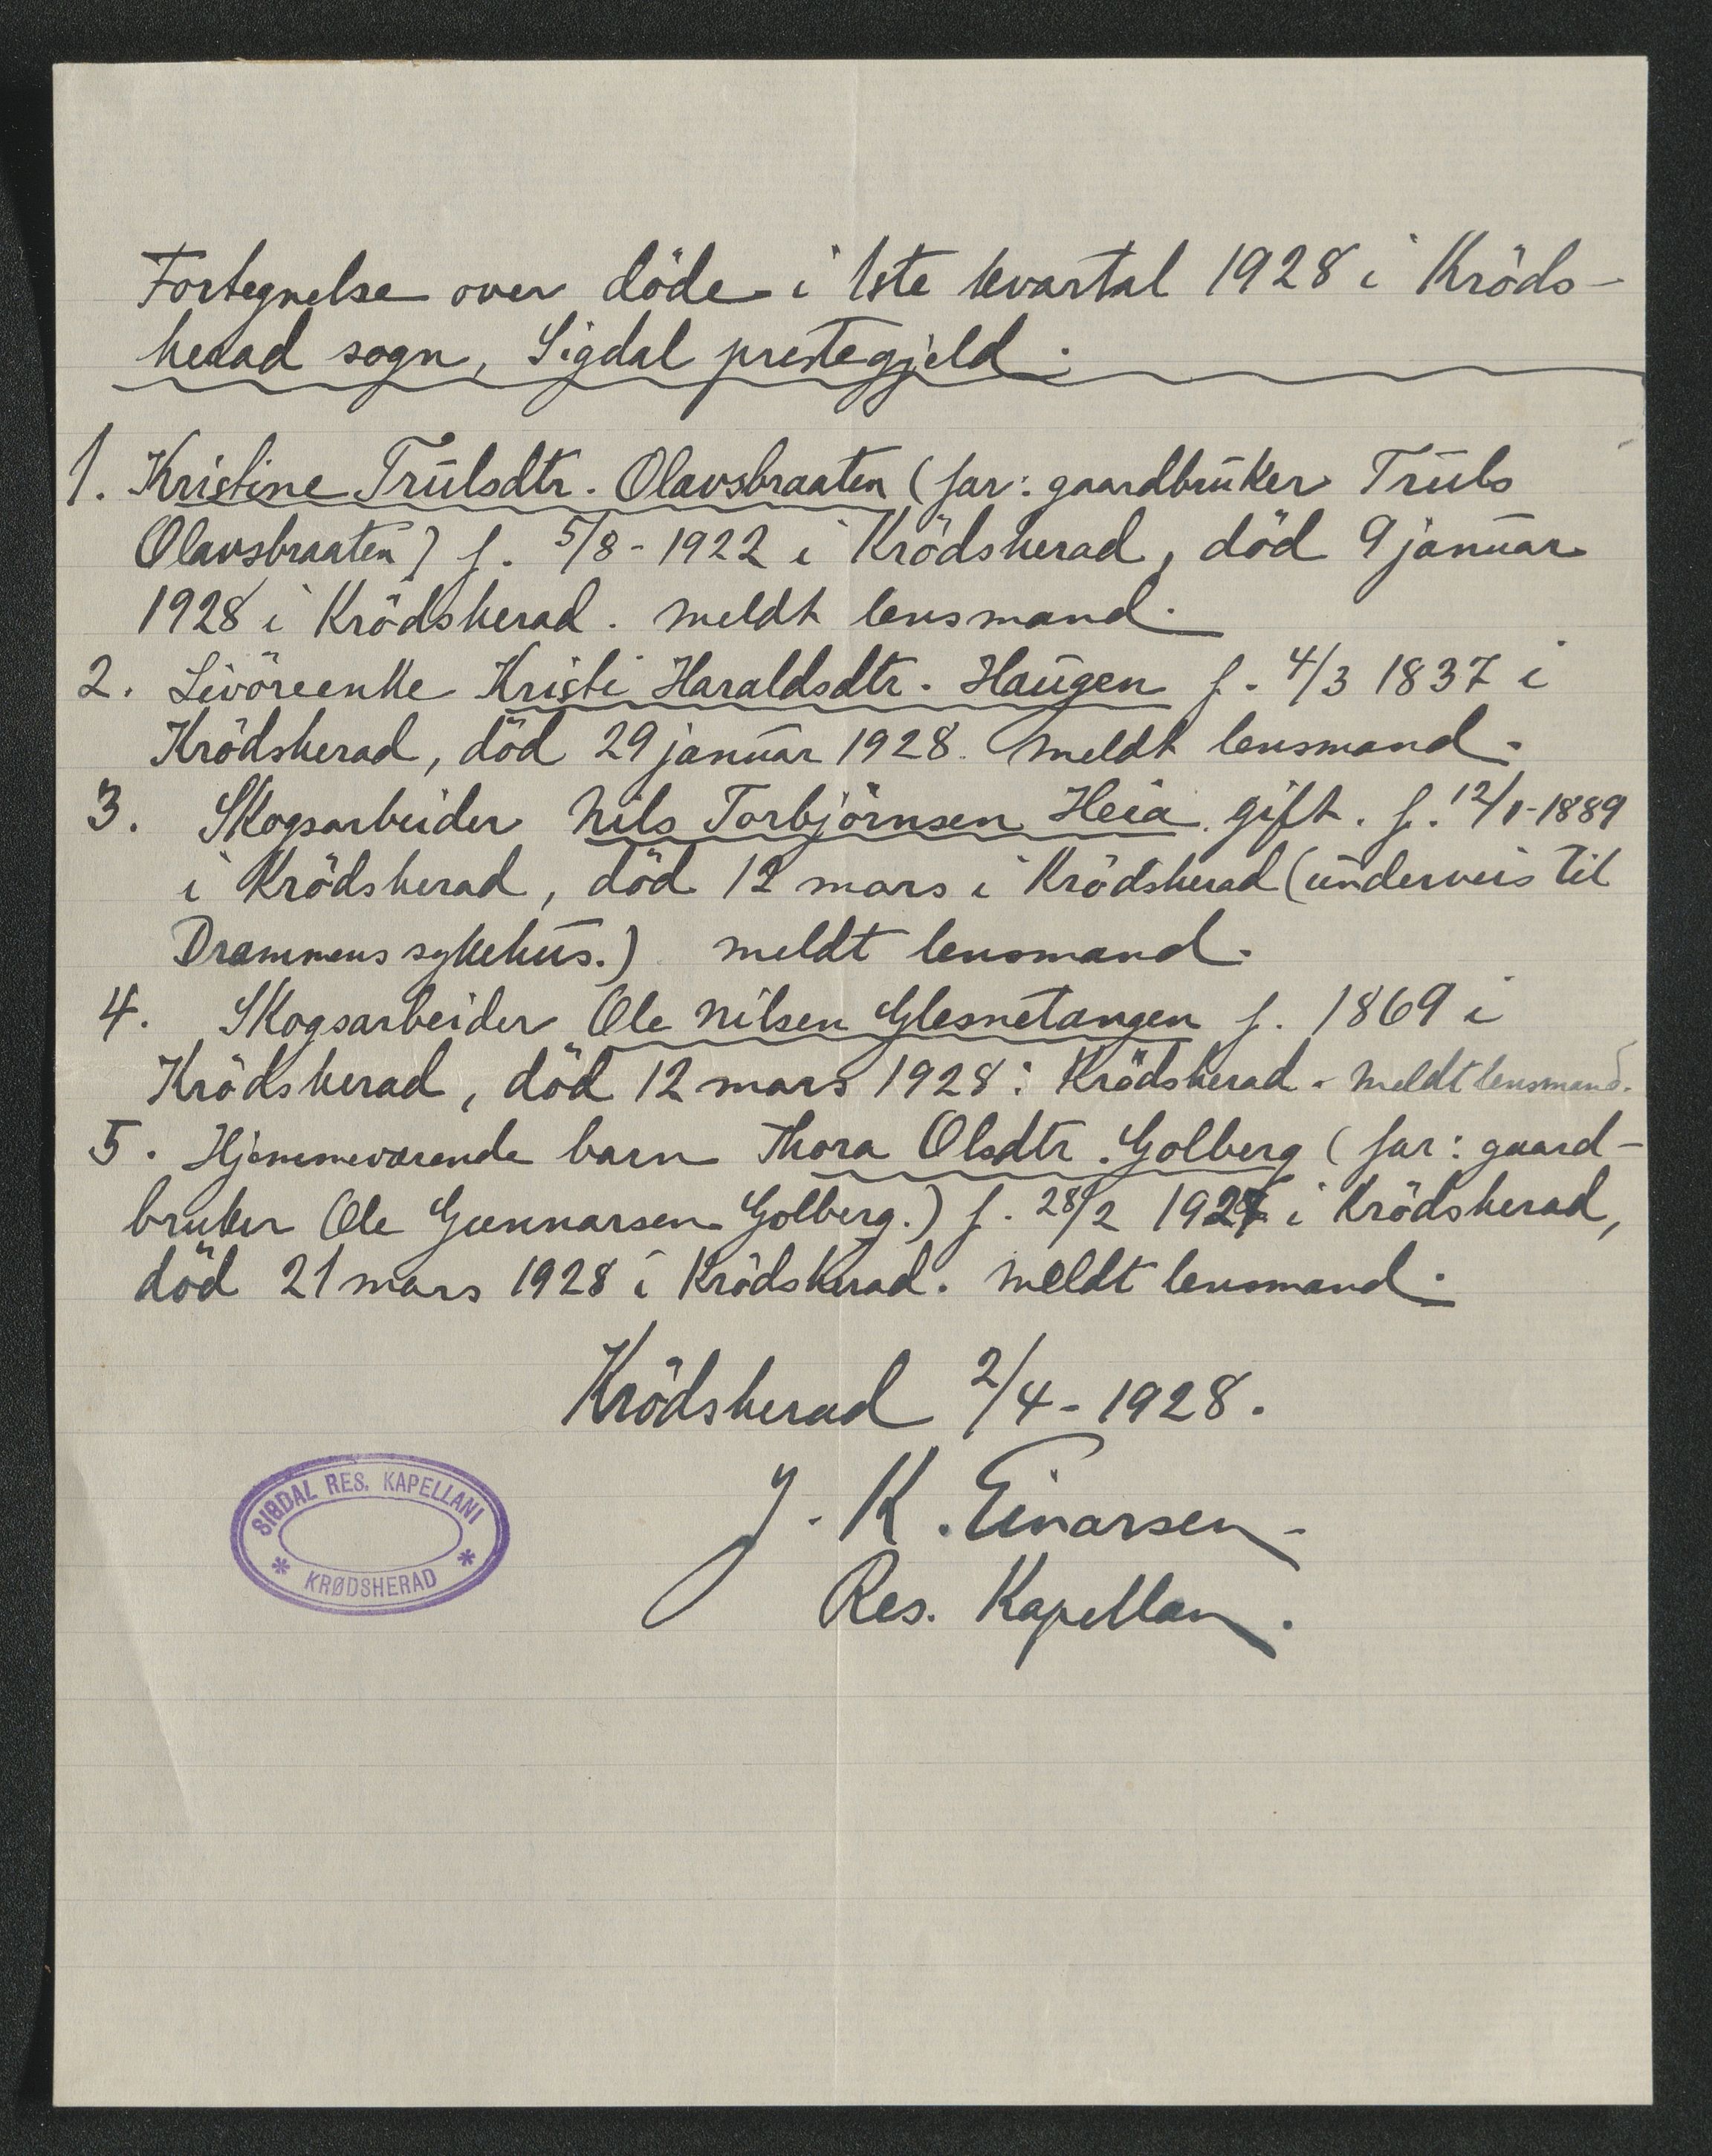 Fortegnelse over döde i 1ste kvartal 1928 i Kröds-
herad sogn, Sigdal prestegjeld.
1. Kristine Trulsdtr. Olavsbraaten (far: gaardbruker Truls
Olavsbraaten) f. 5/8 - 1922 i Krödsherad, död 9 januar
1928 i Krödsherad. Meldt lensmand.
2. Livöreenke Kristi Haraldsdtr. Haugen f. 4/3 1837 i
Krödsherad, död 29 januar 1928. Meldt lensmand.
3. Skogsarbeider Nils Torbjörnsen Heia gift. f. 12/1-1889
i Krödsherad, död 12 mars i Krödsherad (underveis til
Drammens sykehus.) meldt lensmand.
4. Skogsarbeider Ole Nilsen Glesnetangen f. 1869 i
Krödsherad, död 12 mars 1928 i Krödsherad - Meldt lensmand.
5. Hjemmeværende barn Thora Olsdtr. Golberg (far: gaard-
bruker Ole Gunnarsen Golberg.) f. 28/2 1927 i Krödsherad,
död 21 mars 1928 i Krödsherad. Meldt lensmand.
Krödsherad 2/4 - 1928.
J. K. Einarsen
Res. Kapellan.
SIGDAL RES. KAPELLANI
* KRØDSHERAD *